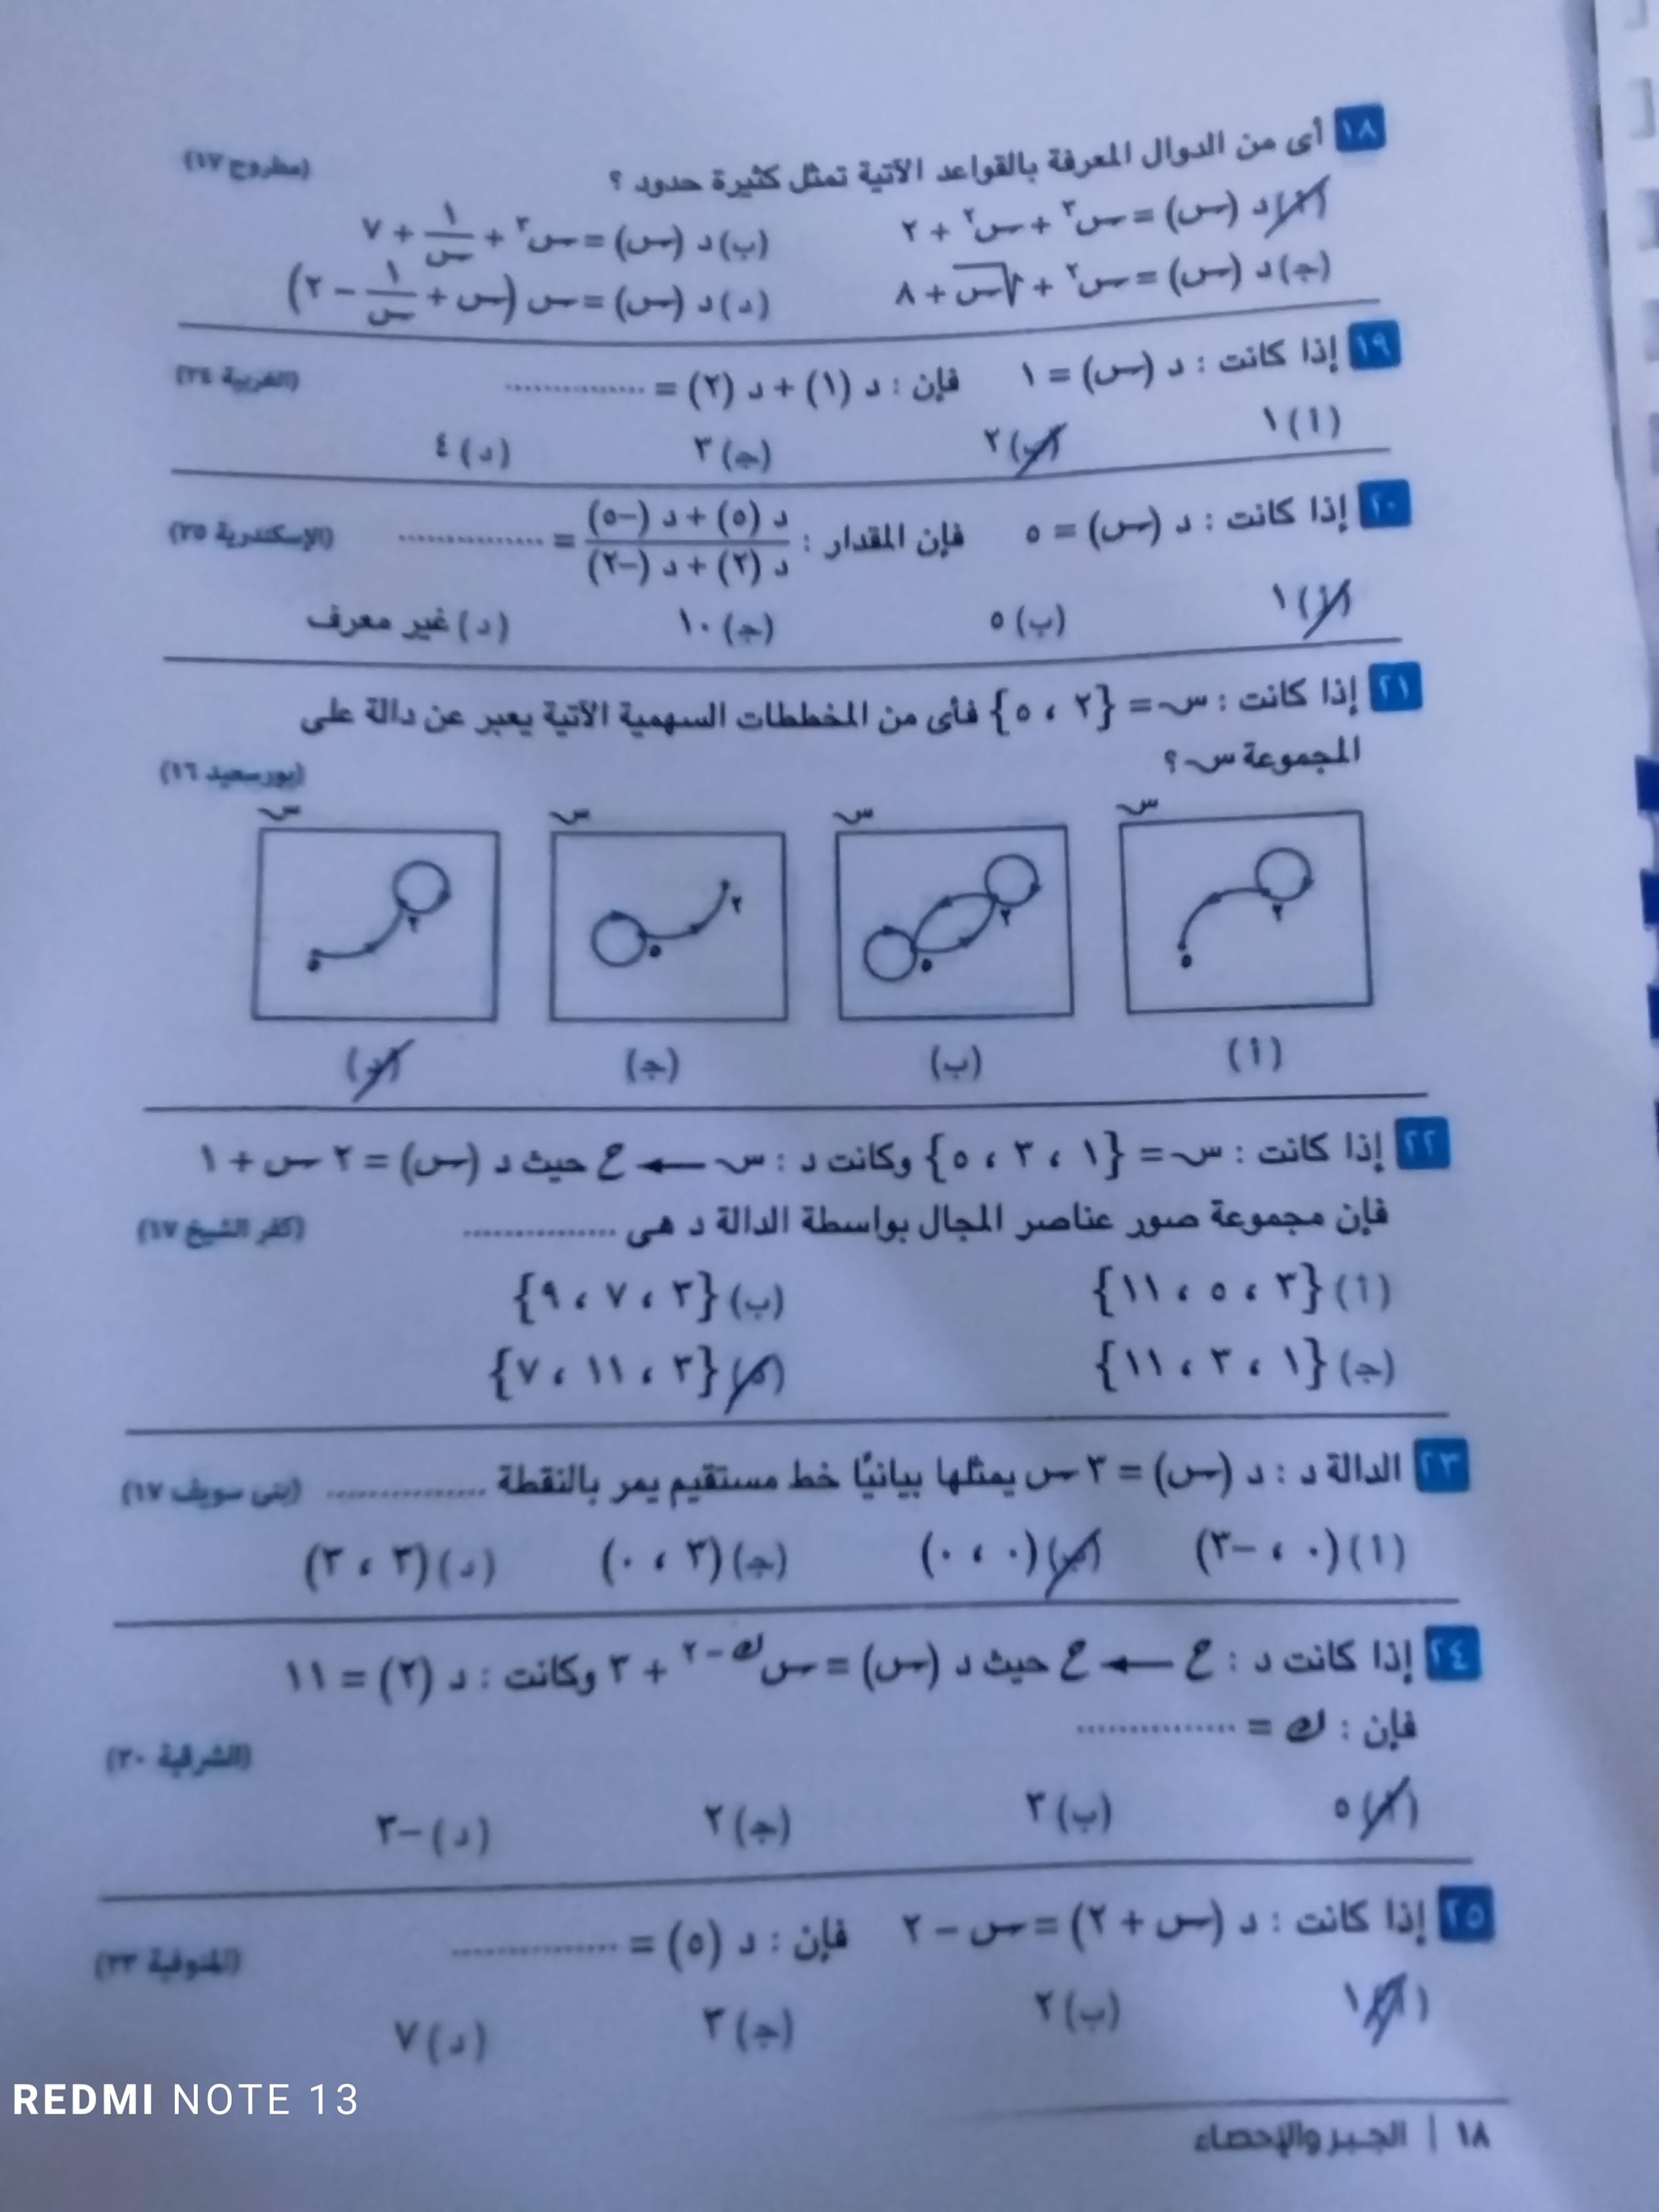 ١٨ أى من الدوال المعرفة بالقواعد الآتية تمثل كثيرة حدود ؟ (مطروح ١٧)
(أ) د (س) = س٣ + س٢ + ٢ (ب) د (س) = س٣ + ١/س + ٧
(جـ) د (س) = س٢ + √س + ٨ (د) د (س) = س (س + ١/س − ٢)
١٩ إذا كانت : د (س) = ١ فإن : د (١) + د (٢) = ............... (الغربية ٢٤)
(أ) ١ (ب) ٢ (جـ) ٣ (د) ٤
٢٠ إذا كانت : د (س) = ٥ فإن المقدار : (د (٥) + د (−٥))/(د (٢) + د (−٢)) = ............... (الإسكندرية ٢٥)
(أ) ١ (ب) ٥ (جـ) ١٠ (د) غير معرف
٢١ إذا كانت : س = {٢ ، ٥} فأى من المخططات السهمية الآتية يعبر عن دالة على
المجموعة س ؟ (بورسعيد ١٦)
س س س س
٢ ٢ ٢ ٢
٥ ٥ ٥ ٥
(أ) (ب) (جـ) (د)
٢٢ إذا كانت : س = {١ ، ٣ ، ٥} وكانت د : س ← ح حيث د (س) = ٢ س + ١
فإن مجموعة صور عناصر المجال بواسطة الدالة د هى ............... (كفر الشيخ ١٧)
(أ) {٣ ، ٥ ، ١١} (ب) {٣ ، ٧ ، ٩}
(جـ) {١ ، ٣ ، ١١} (د) {٣ ، ١١ ، ٧}
٢٣ الدالة د : د (س) = ٣ س يمثلها بيانيًا خط مستقيم يمر بالنقطة ............... (بنى سويف ١٧)
(أ) (٠ ، −٣) (ب) (٠ ، ٠) (جـ) (٣ ، ٠) (د) (٣ ، ٣)
٢٤ إذا كانت د : ح ← ح حيث د (س) = س^(ك − ٢) + ٣ وكانت : د (٢) = ١١
فإن : ك = ............... (الشرقية ٢٠)
(أ) ٥ (ب) ٣ (جـ) ٢ (د) −٣
٢٥ إذا كانت : د (س + ٢) = س − ٢ فإن : د (٥) = ............... (المنوفية ٢٣)
(أ) ١ (ب) ٢ (جـ) ٣ (د) ٧
REDMI NOTE 13
١٨ | الجبر والإحصاء